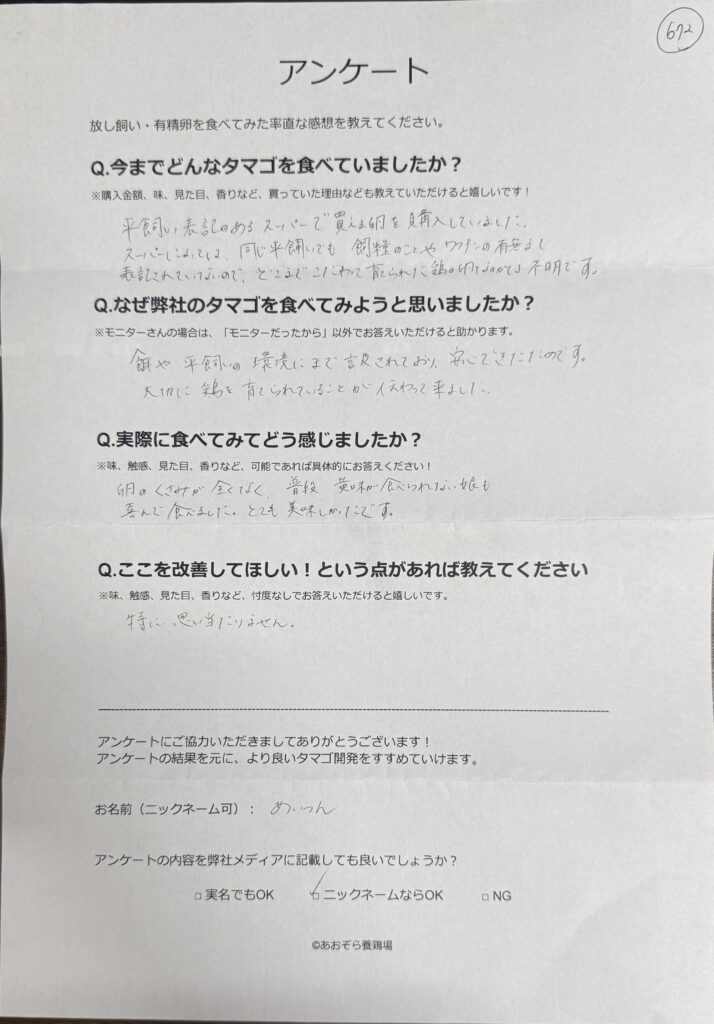 672
アンケート
放し飼い・有精卵を食べてみた率直な感想を教えてください。
Q.今までどんなタマゴを食べていましたか？
※購入金額、味、見た目、香りなど、買っていた理由なども教えていただけると嬉しいです！
平飼い表記のあるスーパーで買える卵を購入していました。
スーパーによっては、同じ平飼いでも 飼料のことやワクチンの有無まで
表記されていないので、どこまでこだわって育てられた鶏の卵なのかは 不明です。
Q.なぜ弊社のタマゴを食べてみようと思いましたか？
※モニターさんの場合は、「モニターだったから」以外でお答えいただけると助かります。
餌や平飼いの環境にまで 言及されており、安心できたためです。
大切に 鶏を育てられていることが伝わって来ました。
Q.実際に食べてみてどう感じましたか？
※味、触感、見た目、香りなど、可能であれば具体的にお答えください！
卵のくさみが全くなく、普段 黄味が食べられない娘も
喜んで食べました。とても美味しかったです。
Q.ここを改善してほしい！という点があれば教えてください
※味、触感、見た目、香りなど、忖度なしでお答えいただけると嬉しいです。
特に思い当たりません。
アンケートにご協力いただきましてありがとうございます！
アンケートの結果を元に、より良いタマゴ開発をすすめていけます。
お名前（ニックネーム可）： めいつん
アンケートの内容を弊社メディアに記載しても良いでしょうか？
□ 実名でもOK ☑ ニックネームならOK □ NG
©あおぞら養鶏場